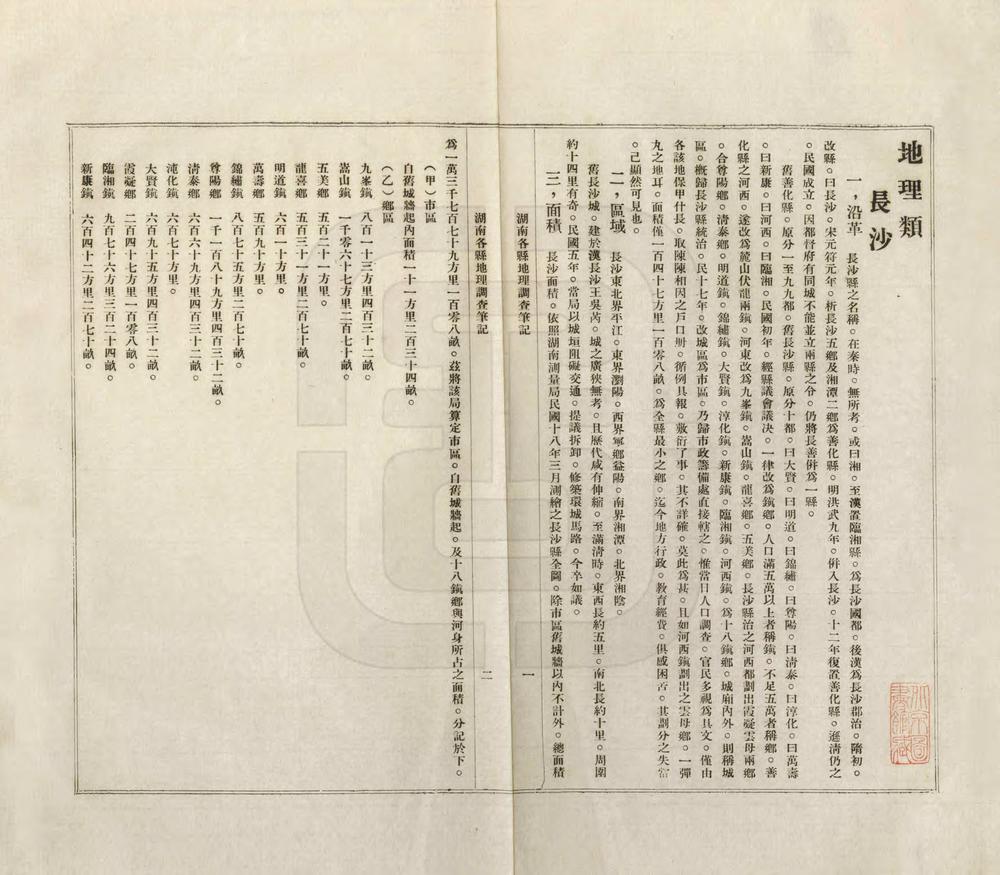 地理類
長沙
一，沿革　長沙縣之名稱。在秦時。無所考。或曰湘。至漢置臨湘縣。爲長沙國都。後漢爲長沙郡治。隋初。
改縣。曰長沙。宋元符元年。析長沙五鄉及湘潭二鄉爲善化縣。明洪武九年。倂入長沙。十二年復置善化縣。遜淸仍之
。民國成立。因都督府有同城不能並立兩縣之令。仍將長善倂爲一縣。
舊善化縣。原分一至九九都。舊長沙縣。原分十都。曰大賢。曰明道。曰錦繡。曰尊陽。曰淸泰。曰淳化。曰萬壽
。曰新康。曰河西。曰臨湘。民國初年。經縣議會議決。一律改爲鎭鄉。人口滿五萬以上者稱鎭。不足五萬者稱鄉。善
化縣之河西。遂改爲麓山伏龍兩鎭。河東改爲九峯鎭。嵩山鎭。龍喜鄉。五美鄉。長沙縣治之河西都劃出霞凝雲母兩鄉
。合尊陽鄉。淸泰鄉。明道鎭。錦繡鎭。大賢鎭。淳化鎭。新康鎭。臨湘鎭。河西鎭。爲十八鎭鄉。城廂內外。則稱城
區。槪歸長沙縣統治。民十七年。改城區爲市區。乃歸市政籌備處直接轄之。惟當日人口調查。官民多視爲具文。僅由
各該地保甲什長。取陳陳相因之戶口册。循例具報。敷衍了事。其不詳確。莫此爲甚。且如河西鎭劃出之雲母鄉。一彈
丸之地耳。面積僅一百四十七方里一百零八畝。爲全縣最小之鄉。迄今地方行政。敎育經費。俱感困苦。其劃分之失當
。已顯然可見也。
二，區域　長沙東北界平江。東界瀏陽。西界寧鄉益陽。南界湘潭。北界湘陰。
舊長沙城。建於漢長沙王吳芮。城之廣狹無考。且歷代咸有伸縮。至滿淸時。東西長約五里。南北長約十里。周圍
約十四里有奇。民國五年。當局以城垣阻礙交通。提議拆卸。修築環城馬路。今卒如議。
三，面積　長沙面積。依照湖南測量局民國十八年三月測繪之長沙縣全圖。除市區舊城牆以內不計外。總面積
湖南各縣地理調查筆記
一
湖南各縣地理調查筆記
二
爲一萬三千七百七十九方里一百零八畝。茲將該局算定市區。自舊城牆起。及十八鎭鄉與河身所占之面積。分記於下。
（甲）市區
自舊城牆起內面積一十一方里二百三十四畝。
（乙）鄉區
九峯鎭　八百一十三方里四百三十二畝。
嵩山鎭　一千零六十七方里二百七十畝。
五美鄉　五百二十一方里。
龍喜鄉　五百三十一方里二百七十畝。
明道鎭　六百一十方里。
萬壽鄉　五百九十方里。
錦繡鎭　八百七十五方里二百七十畝。
尊陽鄉　一千一百八十九方里四百三十二畝。
淸泰鄉　六百六十九方里四百三十二畝。
淳化鎭　六百七十方里。
大賢鎭　六百九十五方里四百三十二畝。
霞凝鄉　二百四十七方里一百零八畝。
臨湘鎭　九百七十六方里三百二十四畝。
新康鎭　六百四十二方里二百七十畝。